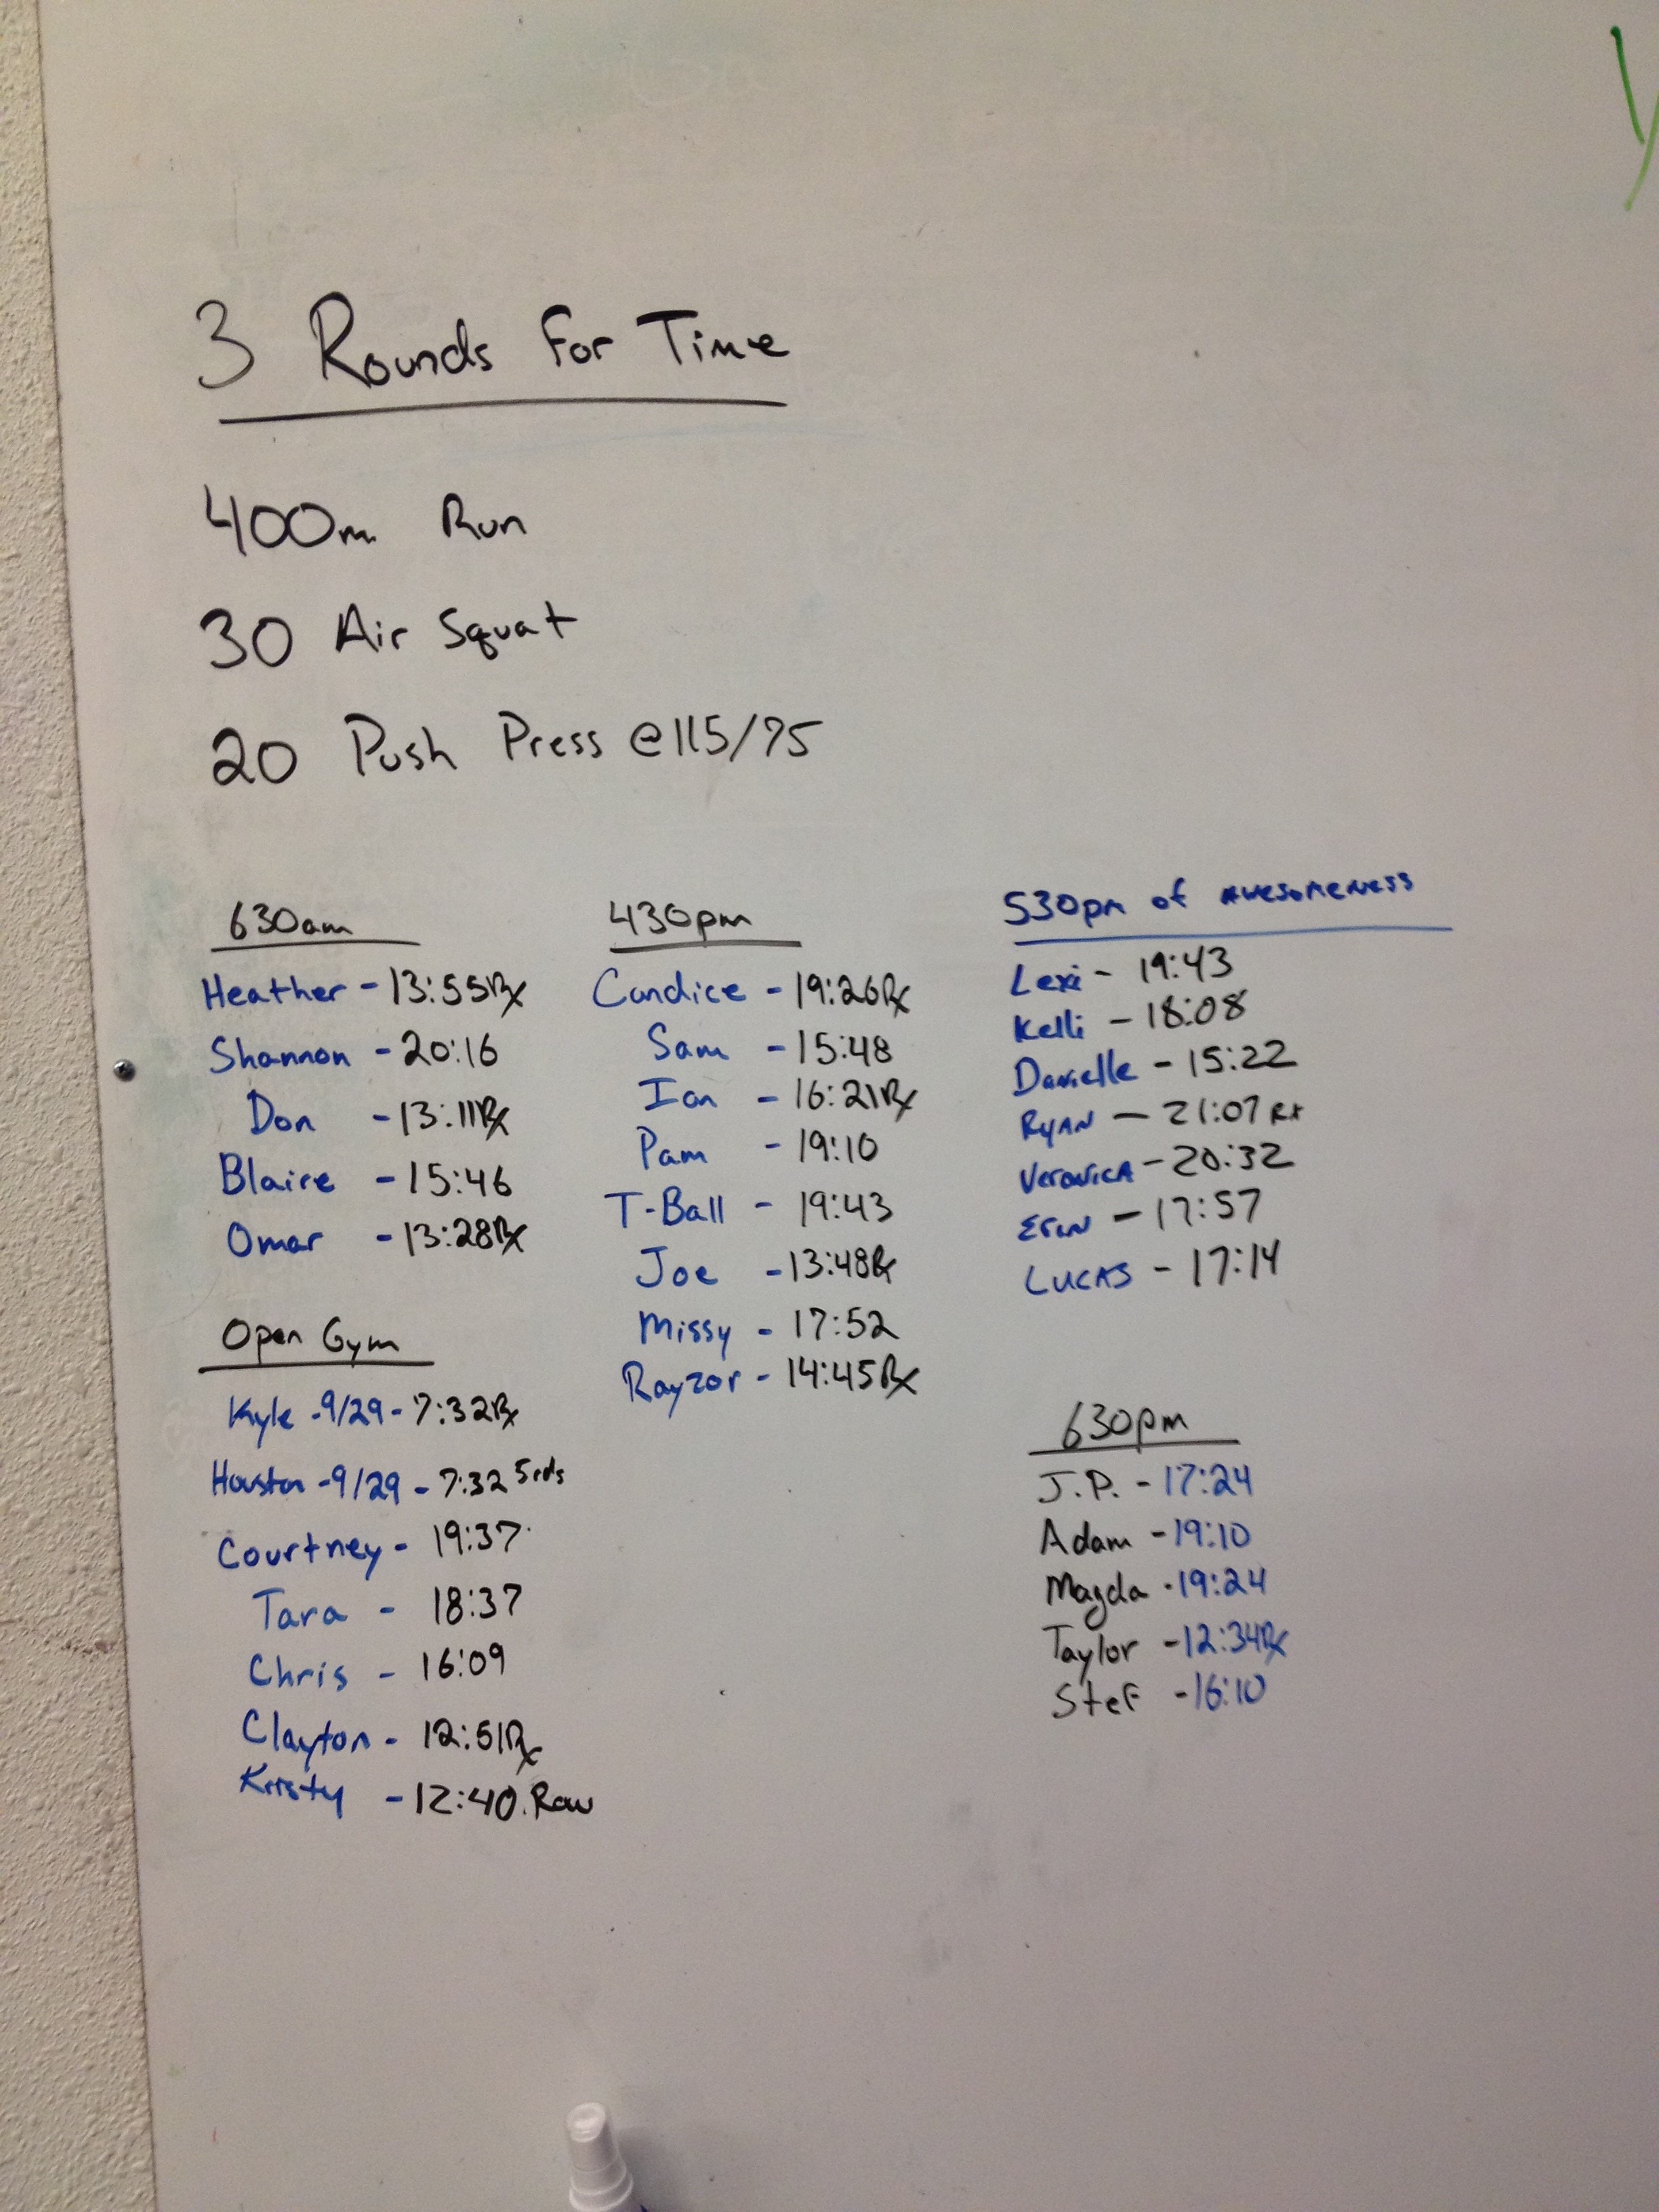 3 Rounds For Time
400m Run
30 Air Squat
20 Push Press @115/75
630am
Heather - 13:55 Rx
Shannon - 20:16
Don - 13:11 Rx
Blaire - 15:46
Omar - 13:28 Rx
Open Gym
Kyle - 9/29 - 7:32 Rx
Houston - 9/29 - 7:32 5rds
Courtney - 19:37
Tara - 18:37
Chris - 16:09
Clayton - 12:51 Rx
Kristy - 12:40. Row
430pm
Candice - 19:26 Rx
Sam - 15:48
Ian - 16:21 Rx
Pam - 19:10
T-Ball - 19:43
Joe - 13:48 Rx
Missy - 17:52
Rayzor - 14:45 Rx
530pm of AWESOMENESS
Lexi - 19:43
Kelli - 18:08
Danielle - 15:22
RYAN - 21:07 Rx
VeronicA - 20:32
Erin - 17:57
LUCAS - 17:14
630pm
J.P. - 17:24
Adam - 19:10
Magda - 19:24
Taylor - 12:34 Rx
Stef - 16:10